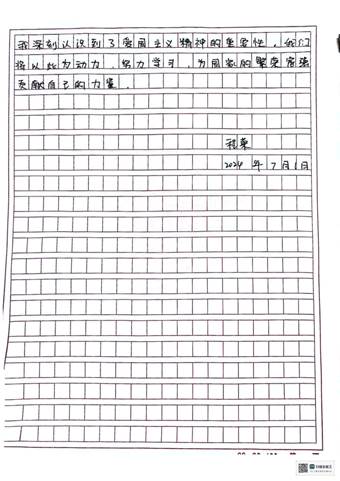 我深刻认识到了爱国主义精神的重要性，我们
将以此为动力，努力学习，为国家的繁荣富强
贡献自己的力量。
2024年7月1日